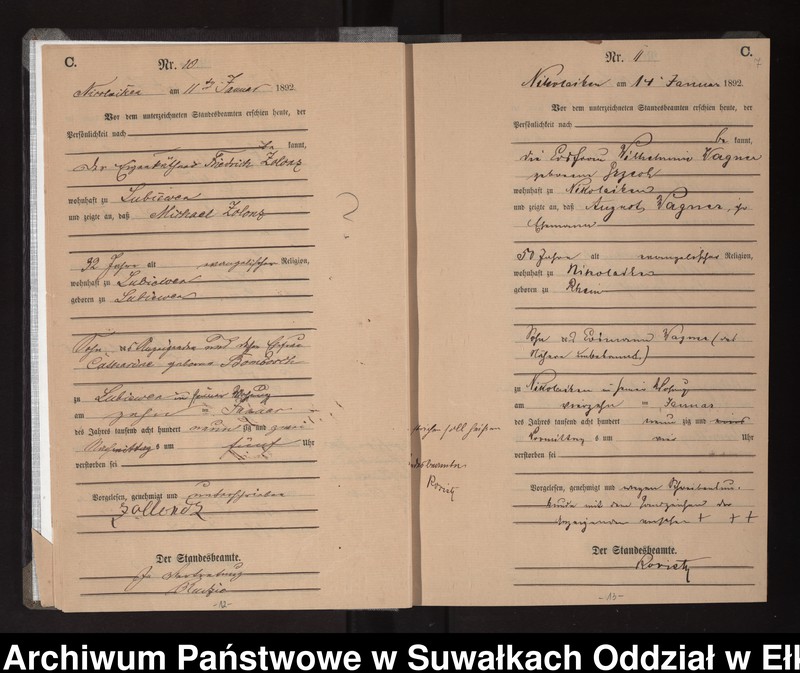 C.
Nr. 10
Nicolaiken am 11ten Januar 1892.
Vor dem unterzeichneten Standesbeamten erschien heute, der
Persönlichkeit nach
be kannt,
der Eigenkäthner Friedrich Zolonz
wohnhaft zu Lubiewen
und zeigte an, daß Michael Zolonz
92 Jahre alt evangelischer Religion,
wohnhaft zu Lubiewen
geboren zu Lubiewen
Sohn des und dessen Ehefrau
Catharine geborne
zu Lubiewen in seiner Wohnung
am zehn ten Januar
des Jahres tausend acht hundert neun zig und zwei
Nachmittag s um fünf Uhr
verstorben sei
Vorgelesen, genehmigt und unterschrieben
Der Standesbeamte.
In Vertretung
-12-
C.
7
Nr. 11
Nikolaiken am 14 Januar 1892.
Vor dem unterzeichneten Standesbeamten erschien heute, der
Persönlichkeit nach
be kannt,
die Wilhelmine Wagner
geborene
wohnhaft zu Nikolaiken
und zeigte an, daß August Wagner, ihr
Ehemann
50 Jahre alt evangelischer Religion,
wohnhaft zu Nikolaiken
geboren zu Rhein
Sohn des Wagner (das
Nähere unbekannt.)
zu Nikolaiken in seiner Wohnung
am vierzehn ten Januar
des Jahres tausend acht hundert neun zig und zwei
Vormittag s um Uhr
verstorben sei
Vorgelesen, genehmigt und wegen Schreibensun-
kunde mit dem Handzeichen der
Anzeigenden versehen + + +
Der Standesbeamte.
-13-
soll heißen
Archiwum Państwowe w Suwałkach Oddział w Ełk